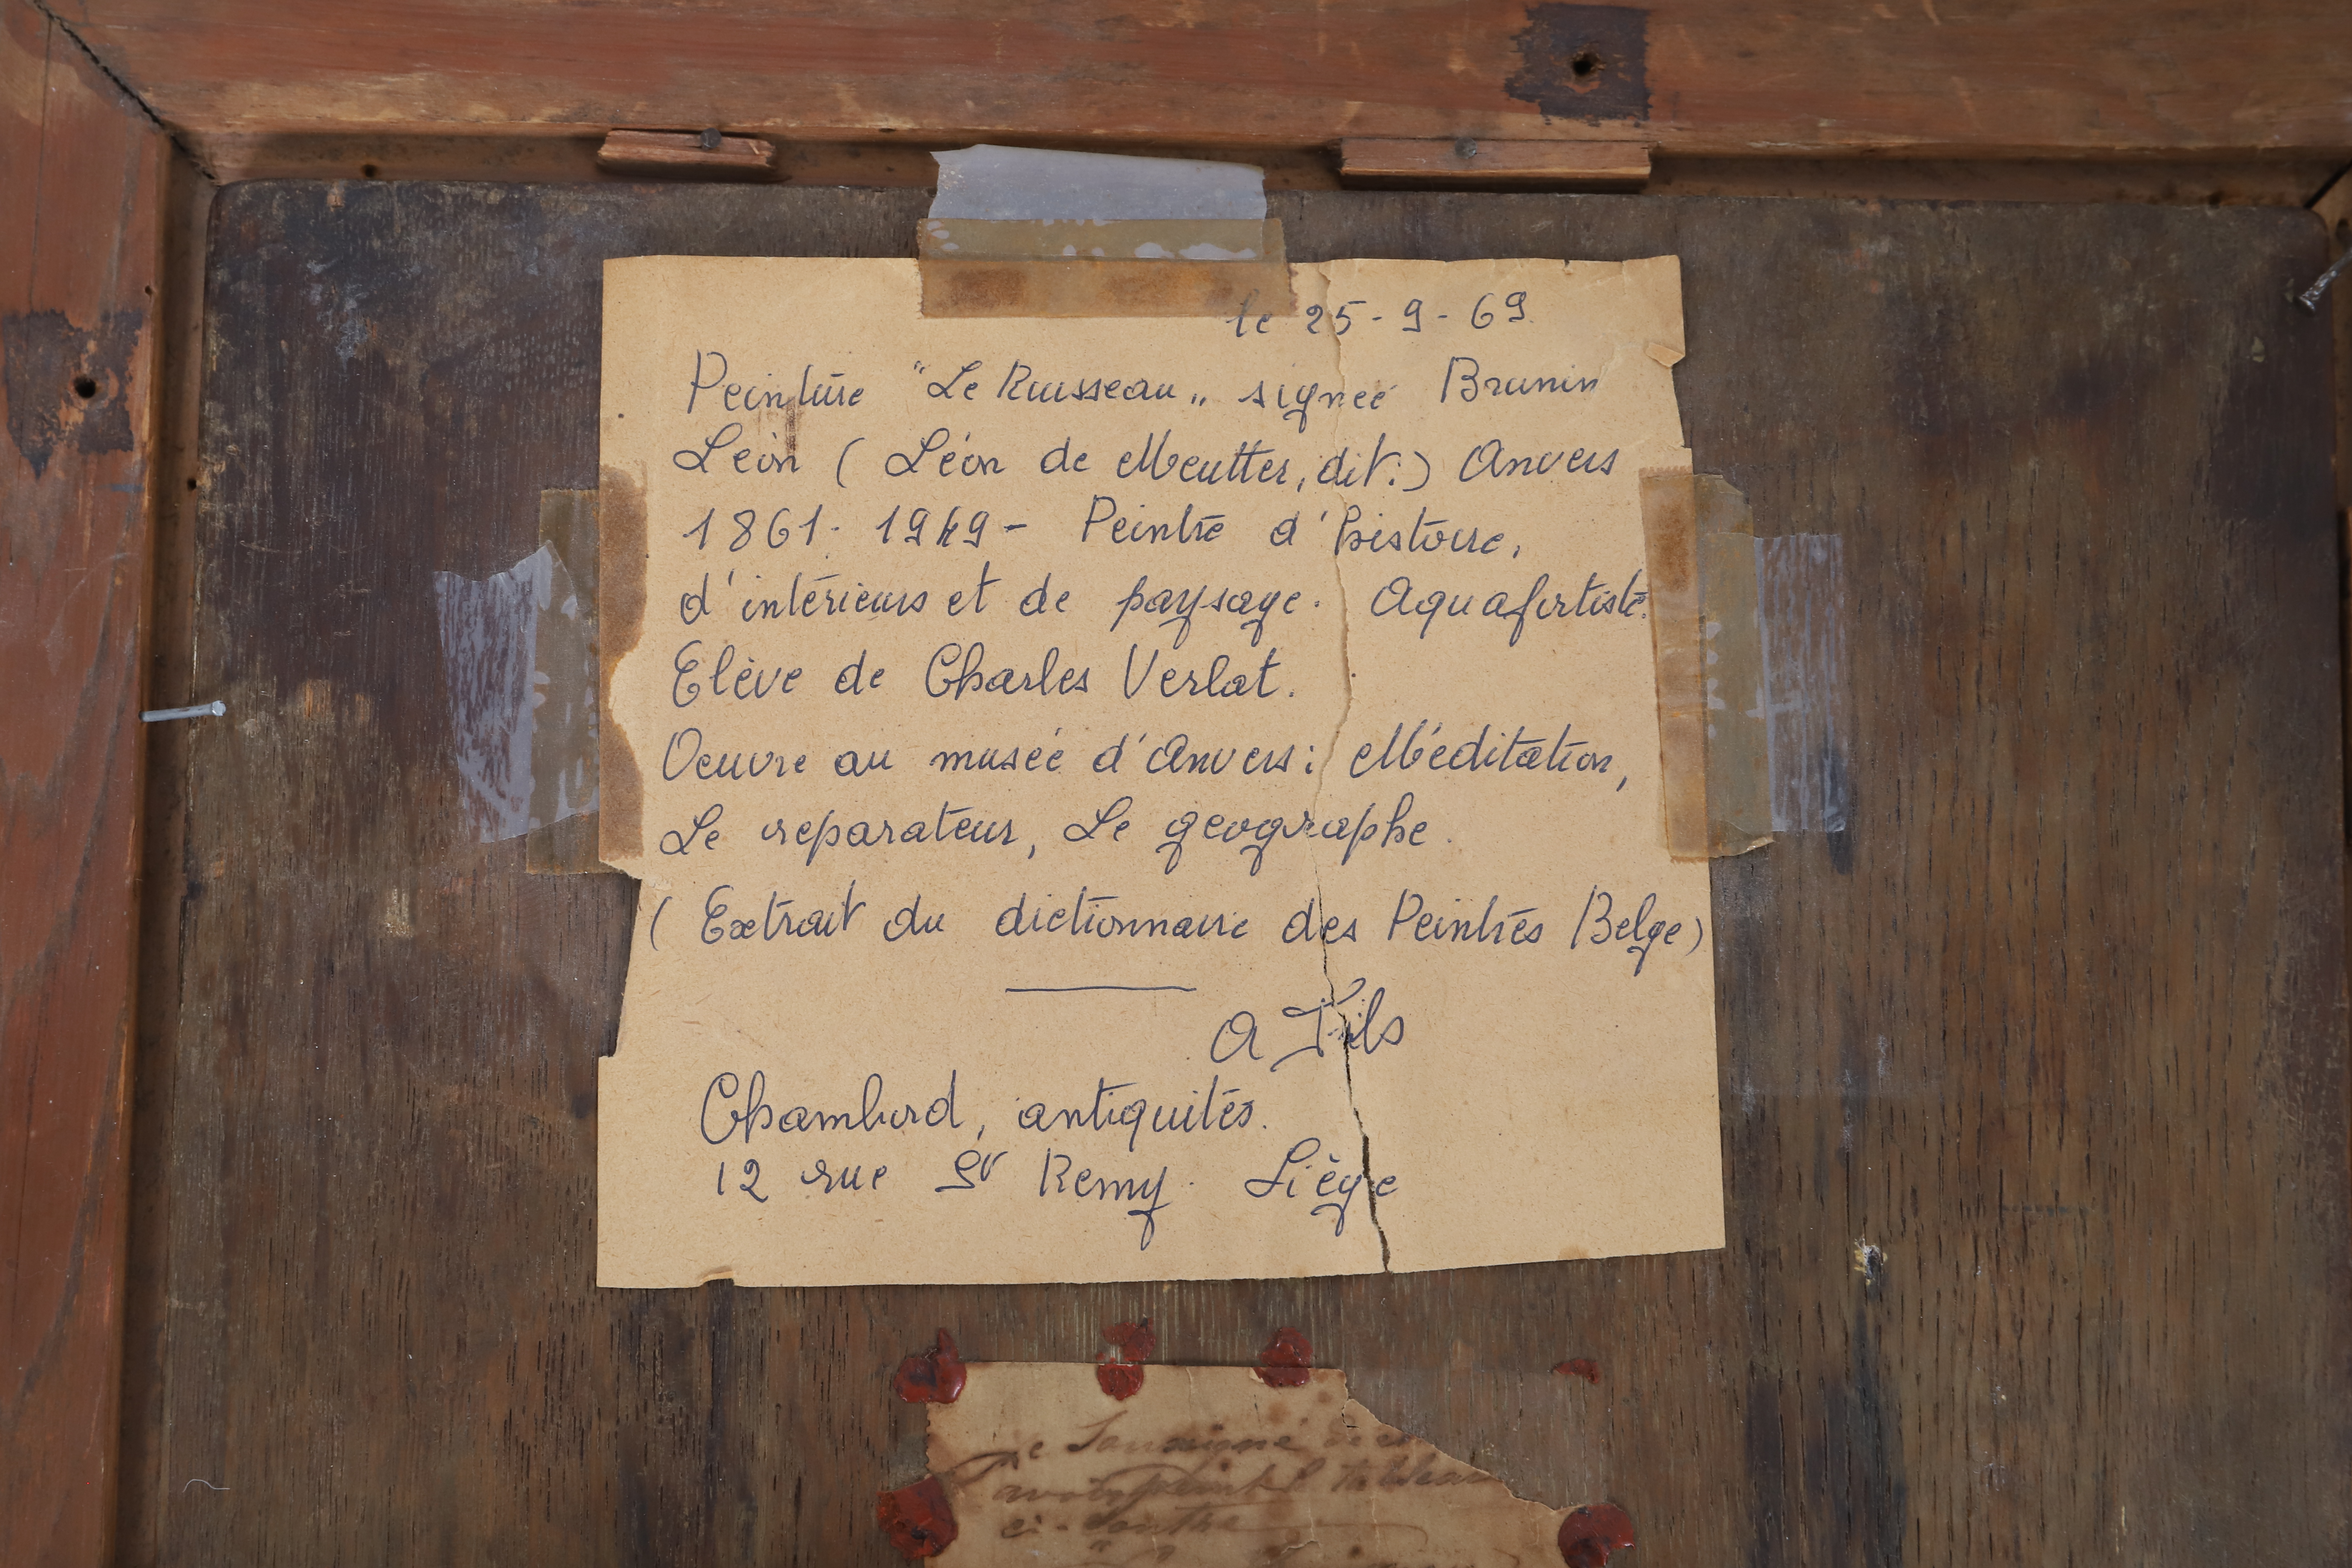 le 25-9-69.
Peinture "Le Ruisseau„ signée Brunin
Léon (Léon de Meutter, dit.) Anvers
1861-1949- Peintre d'histoire,
d'intérieurs et de paysage. Aquafortiste.
Elève de Charles Verlat.
Oeuvre au musée d'Anvers: Méditation,
Le reparateur, Le geographe.
(Extrait du dictionnaire des Peintres Belge)
A
Chambord, antiquités.
12 rue St Remy. Liège
Je Soussigné
avoir peint l tableau
ci-contre